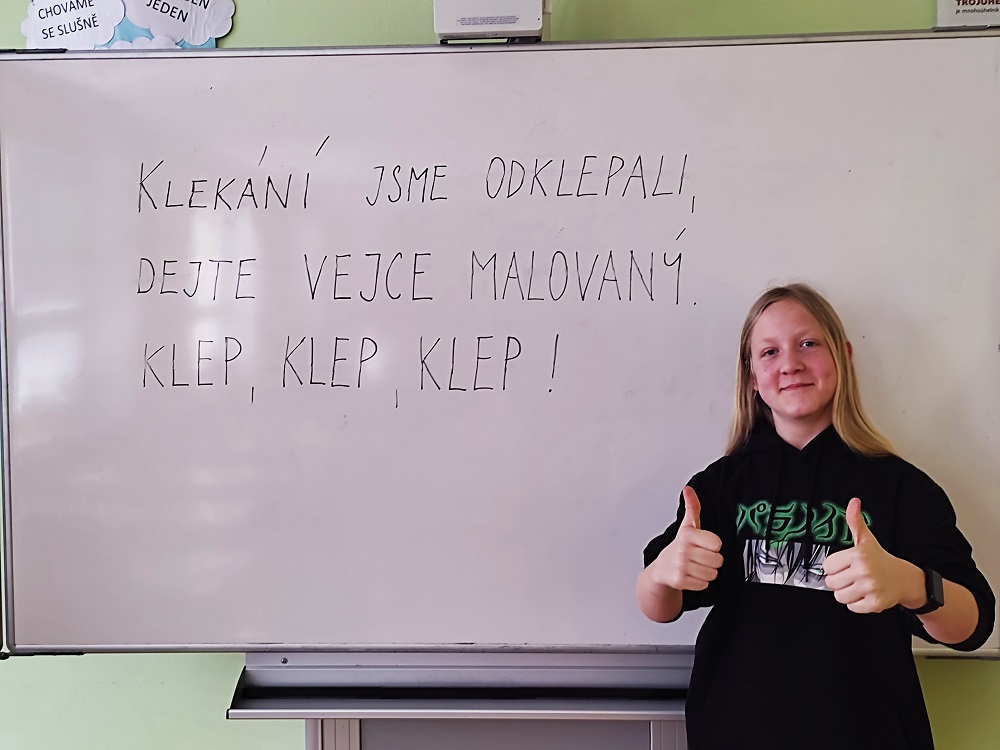 CHOVÁME
SE SLUŠNĚ
JEDEN
TROJÚHE
je mnohoúhelník
KLEKÁNÍ JSME ODKLEPALI,
DEJTE VEJCE MALOVANÝ.
KLEP, KLEP, KLEP!